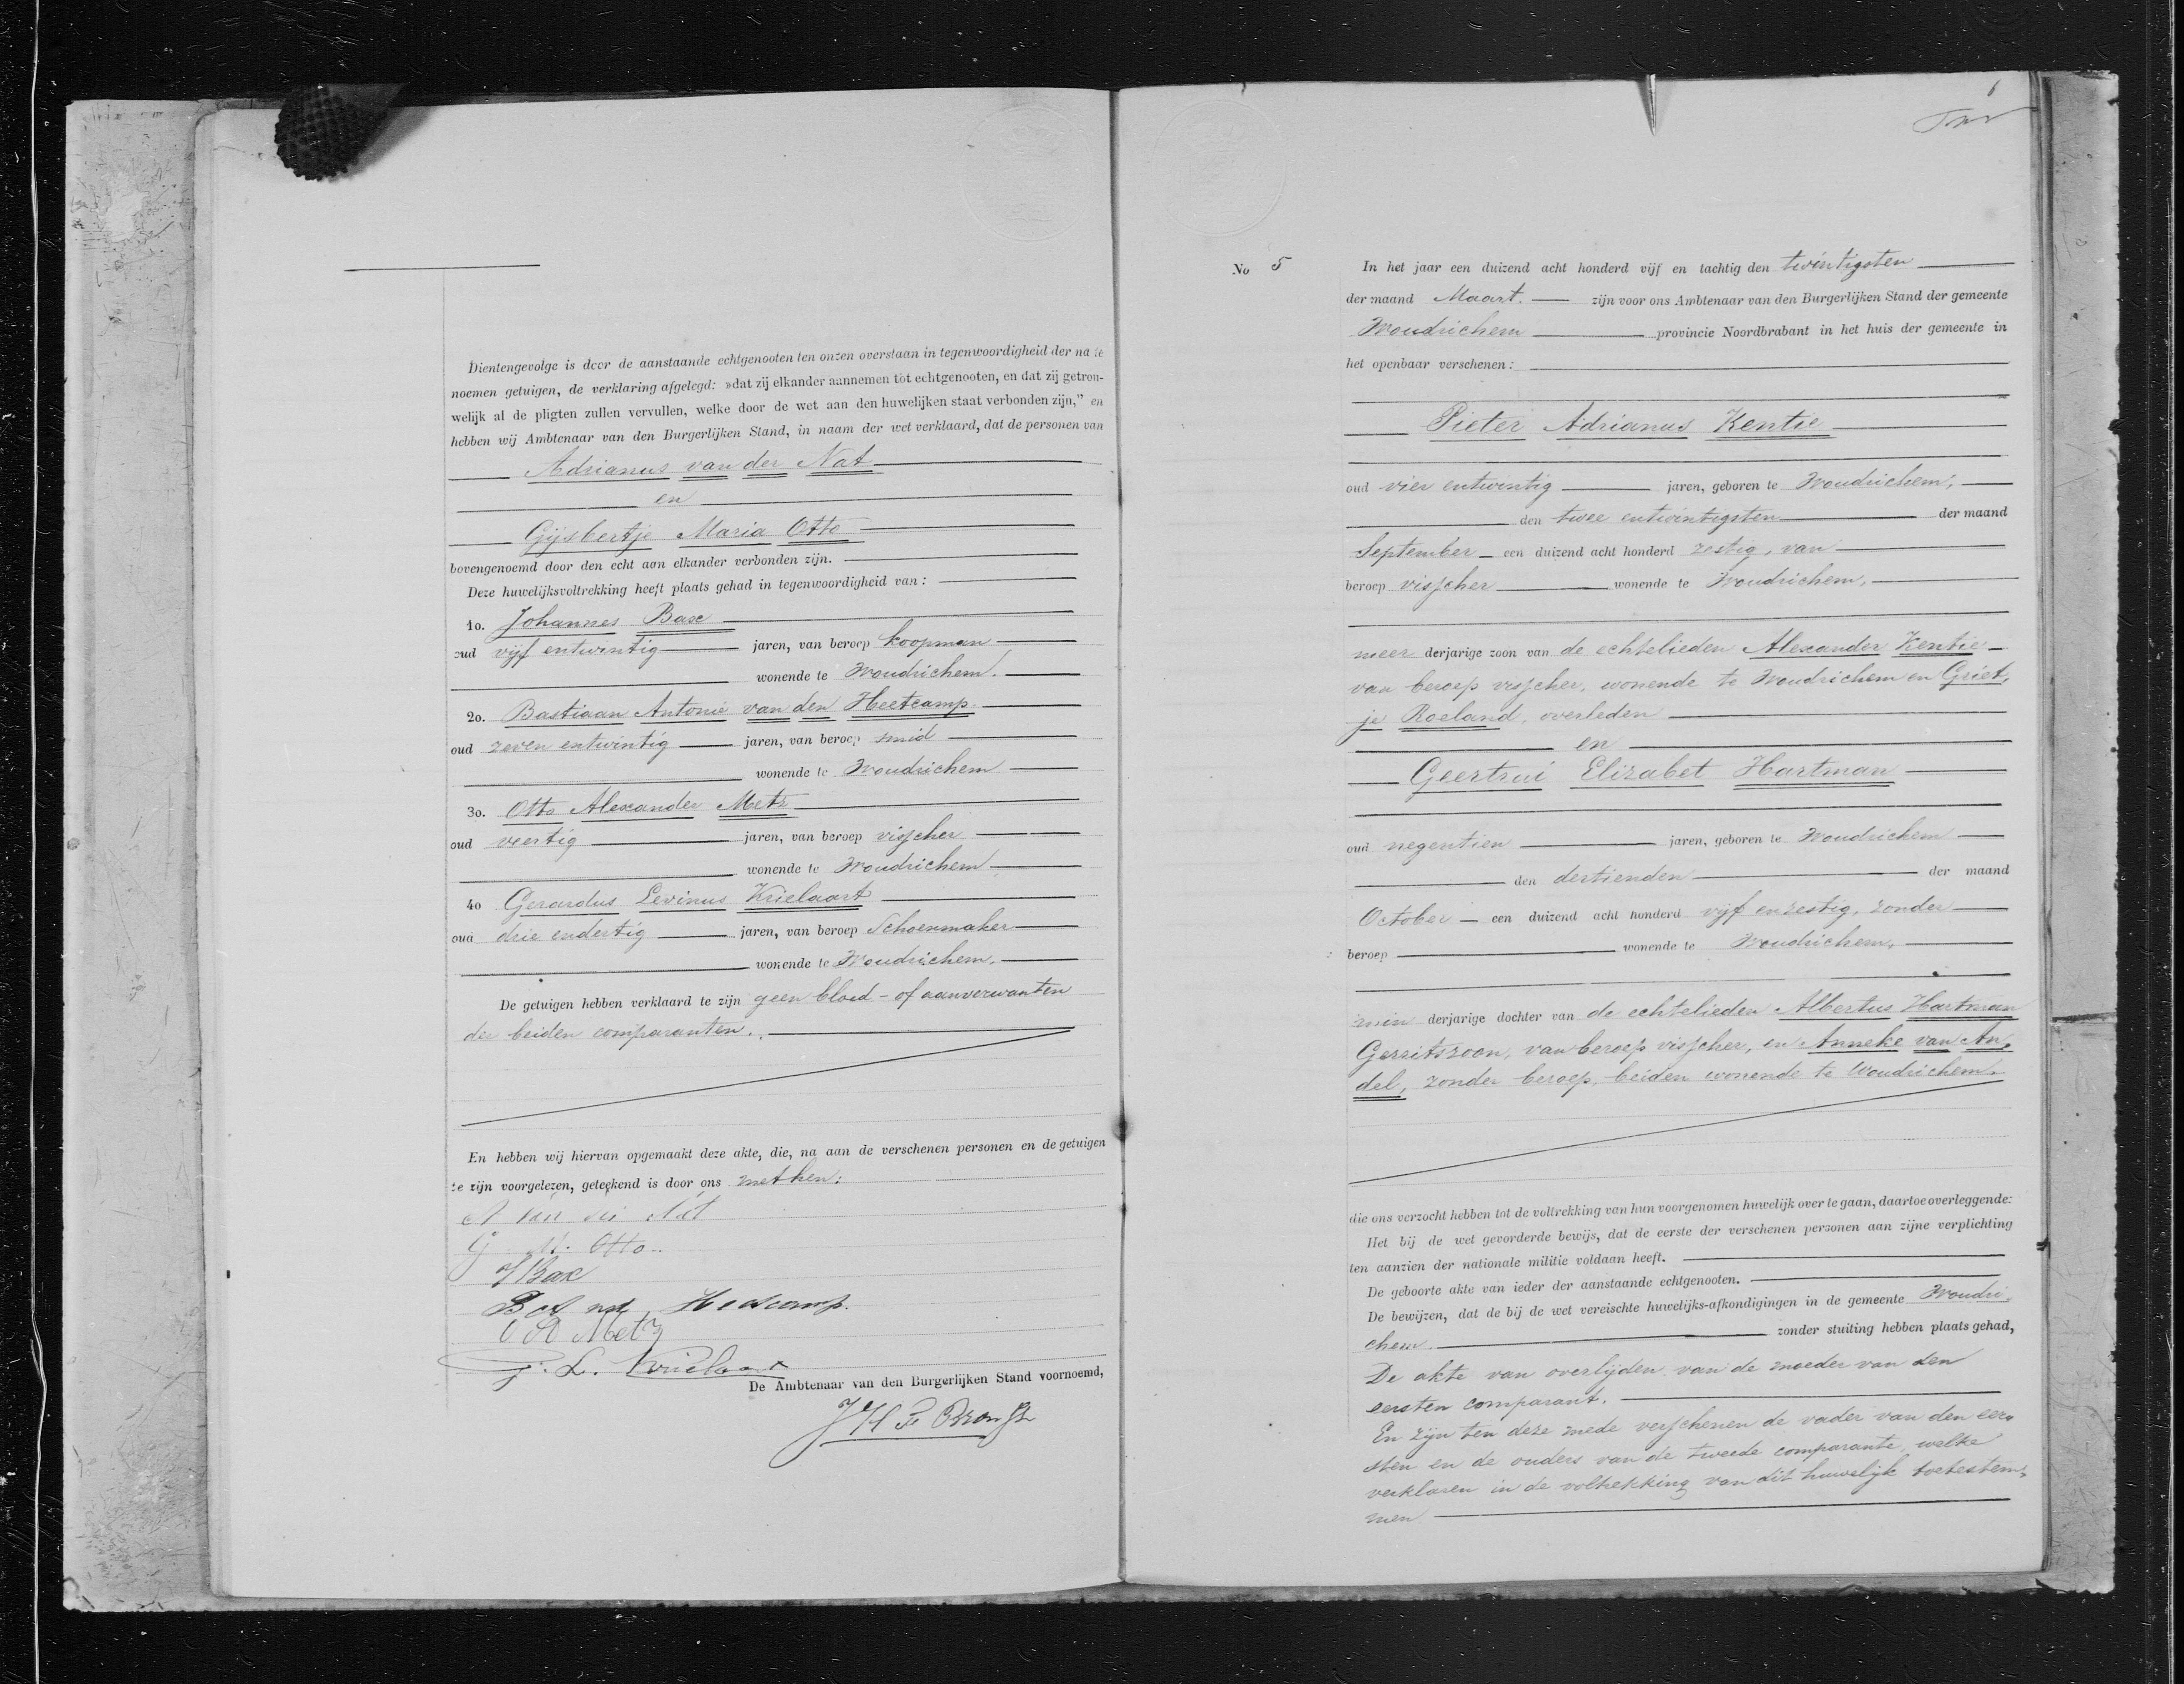 Dientengevolge is door de aanstaande echtgenooten ten onzen overstaan in tegenwoordigheid der na te
noemen getuigen, de verklaring afgelegd: »dat zij elkander aannemen tot echtgenooten, en dat zij getrou-
welijk al de pligten zullen vervullen, welke door de wet aan den huwelijken staat verbonden zijn,” en
hebben wij Ambtenaar van den Burgerlijken Stand, in naam der wet verklaard, dat de personen van
Adrianus van der Nat
en
Gijsbertje Maria Otto
bovengenoemd door den echt aan elkander verbonden zijn.
Deze huwelijksvoltrekking heeft plaats gehad in tegenwoordigheid van:
1o. Johannes Bax
oud vijf entwintig jaren, van beroep koopman
wonende te Woudrichem.
2o. Bastiaan Antonie van den Heetcamp
oud zeven entwintig jaren, van beroep smid
wonende te Woudrichem
3o. Otto Alexander Metz
oud veertig jaren, van beroep visscher
wonende te Woudrichem
4o Gerardus Levinus Krielaart
oud drie endertig jaren, van beroep Schoenmaker
wonende te Woudrichem.
De getuigen hebben verklaard te zijn geen bloed- of aanverwanten
der beiden comparanten.
En hebben wij hiervan opgemaakt deze akte, die, na aan de verschenen personen en de getuigen
te zijn voorgelezen, geteekend is door ons met hen:
A van der Nat
G M. Otto
J Bax
Heetcamp.
O A Metz
G. L. Krielaart
De Ambtenaar van den Burgerlijken Stand voornoemd,
No 5
In het jaar een duizend acht honderd vijf en tachtig den twintigsten
der maand Maart. zijn voor ons Ambtenaar van den Burgerlijken Stand der gemeente
Woudrichem provincie Noordbrabant in het huis der gemeente in
het openbaar verschenen:
Pieter Adrianus Kentie
oud vier entwintig jaren, geboren te Woudrichem,
den twee entwintigsten der maand
September een duizend acht honderd zestig, van
beroep visscher wonende te Woudrichem,
meer derjarige zoon van de echtelieden Alexander Kentie
van beroep visscher, wonende te Woudrichem en Griet,
je Roeland, overleden
en
Geertrui Elizabet Hartman
oud negentien jaren, geboren te Woudrichem
den dertienden der maand
October een duizend acht honderd vijf en zestig, zonder
beroep wonende te Woudrichem,
min derjarige dochter van de echtelieden Albertus Hartman
Gerritszoon, van beroep visscher, en Anneke van An,
del, zonder beroep, beiden wonende te Woudrichem.
die ons verzocht hebben tot de voltrekking van hun voorgenomen huwelijk over te gaan, daartoe overleggende:
Het bij de wet gevorderde bewijs, dat de eerste der verschenen personen aan zijne verplichting
ten aanzien der nationale militie voldaan heeft.
De geboorte akte van ieder der aanstaande echtgenooten.
De bewijzen, dat de bij de wet vereischte huwelijks-afkondigingen in de gemeente Woudri,
chem zonder stuiting hebben plaats gehad,
De akte van overlijden van de moeder van den
eersten comparant.
En zijn ten deze mede verschenen de vader van den eer,
sten en de ouders van de tweede comparante, welke
verklaren in de voltrekking van dit huwelijk toetestem,
men